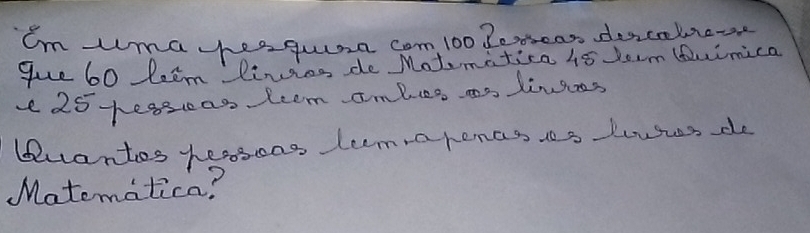 Em uma pesquisa com 100 Pessoas descobre-se
que 60 leêm livros de Matemática 45 leem Química
e 25 pessoas leem ambos os livros
Quantos pessoas leem apenas os livros de
Matemática?